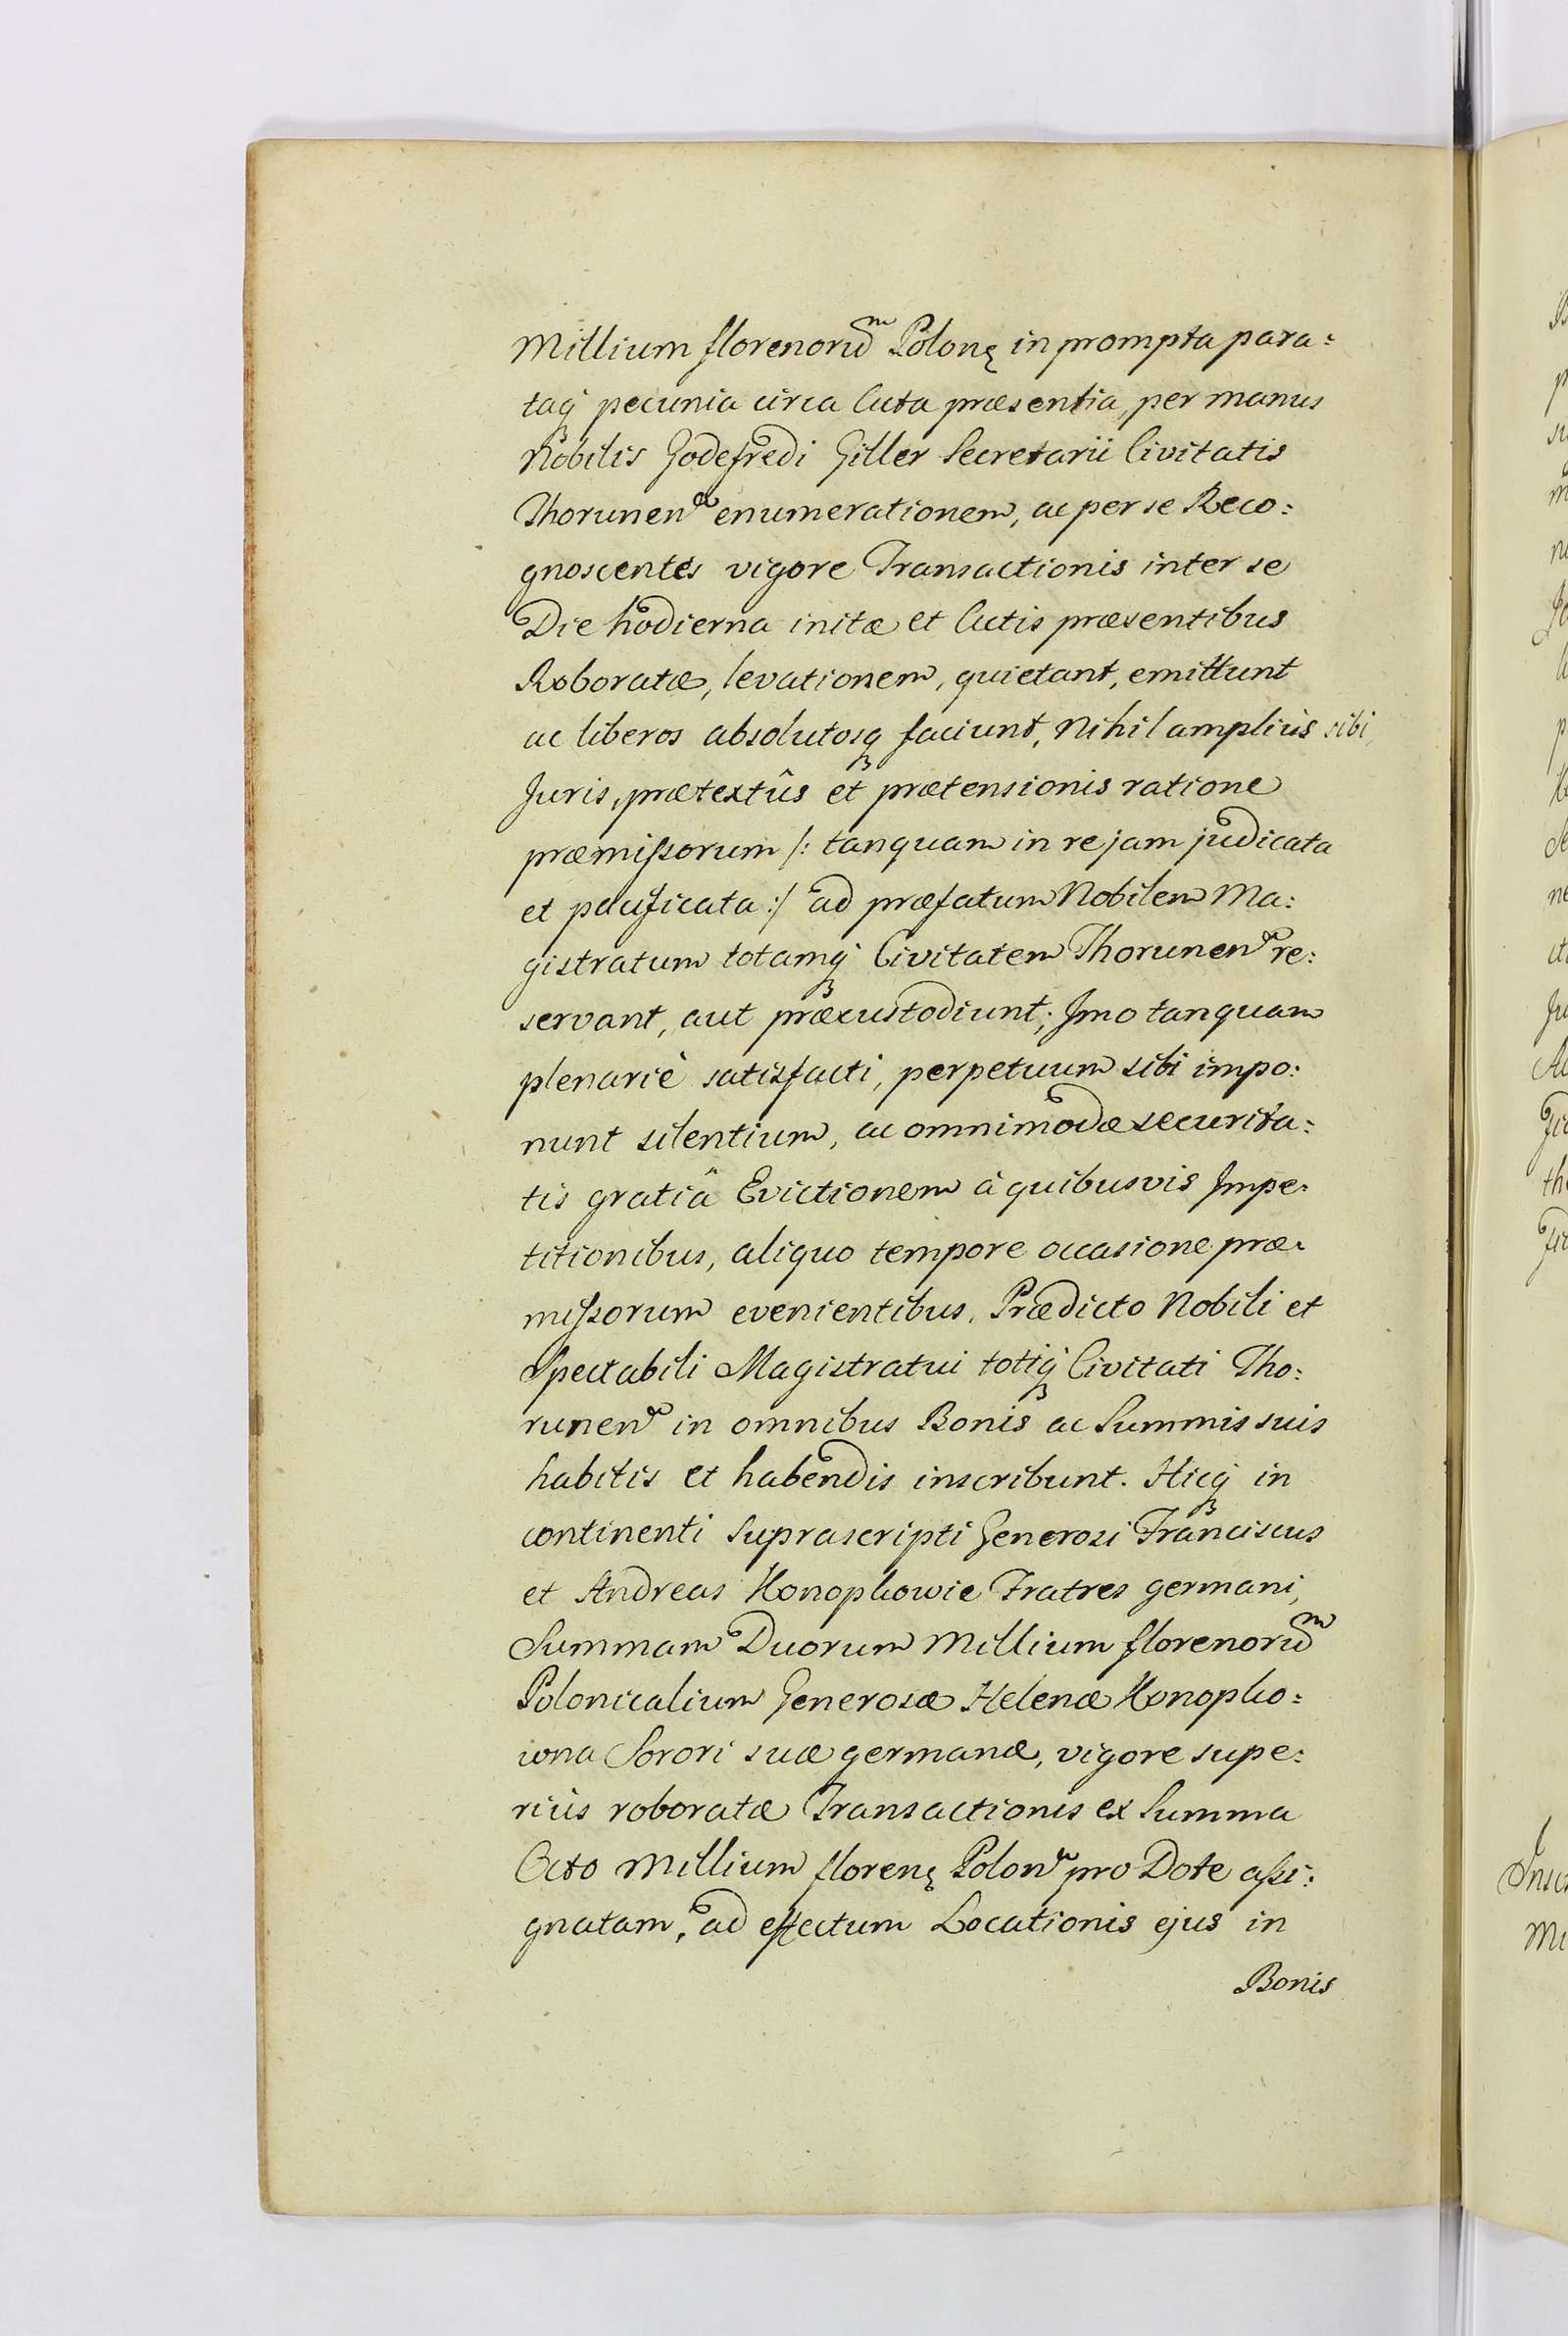 Millium florenorũm Polonę in prompta para:
taq́ʒ pecunia circa Acta præsentia, per manus
Nobilis Godefredi Giller Secretarii Civitatis
Thorunen enumerationem, ac per se Reco:
gnoscentes vigore Transactionis inter se
Die hodierna initæ et Actis præsentibus
Roboratæ, levationem, quietant, emittunt
ac liberos absolutosqʒ faciunt, Nihil amplius sibi,
Juris, prætextûs et prætensionis ratione
præmißorum /: tanquam in re jam judicata
et pacificata :/ ad præfatum Nobilem Ma:
gistratum totamq́ʒ Civitatem Thorunen re:
servant, aut præcustodiunt; Jmo tanquam
plenariè satisfacti, perpetuum sibi impo:
nunt silentium, ac omnimodæ securita:
tis gratiâ Evictionem à quibusvis Jmpe:
titionibus, aliquo tempore occasione præ:
mißorum evenientibus, Prædicto Nobili et
Spectabili Magistratui totiq́ʒ Civitati Tho:
runen in omnibus Bonis ac Summis suis
habitis et habendis inscribunt. Hicq́ʒ in
continenti Suprascripti Generosi Franciscus
et Andreas Konopkowie Fratres germani,
Summam Duorum Millium florenorũm
Polonicalium Generosæ Helenæ Konopko:
wna Sorori suæ germanæ, vigore supe:
riùs roboratæ Transactionis ex Summa
Octo Millium florenę Polon pro Dote aßi:
gnatam, ad effectum Locationis ejus in
Bonis